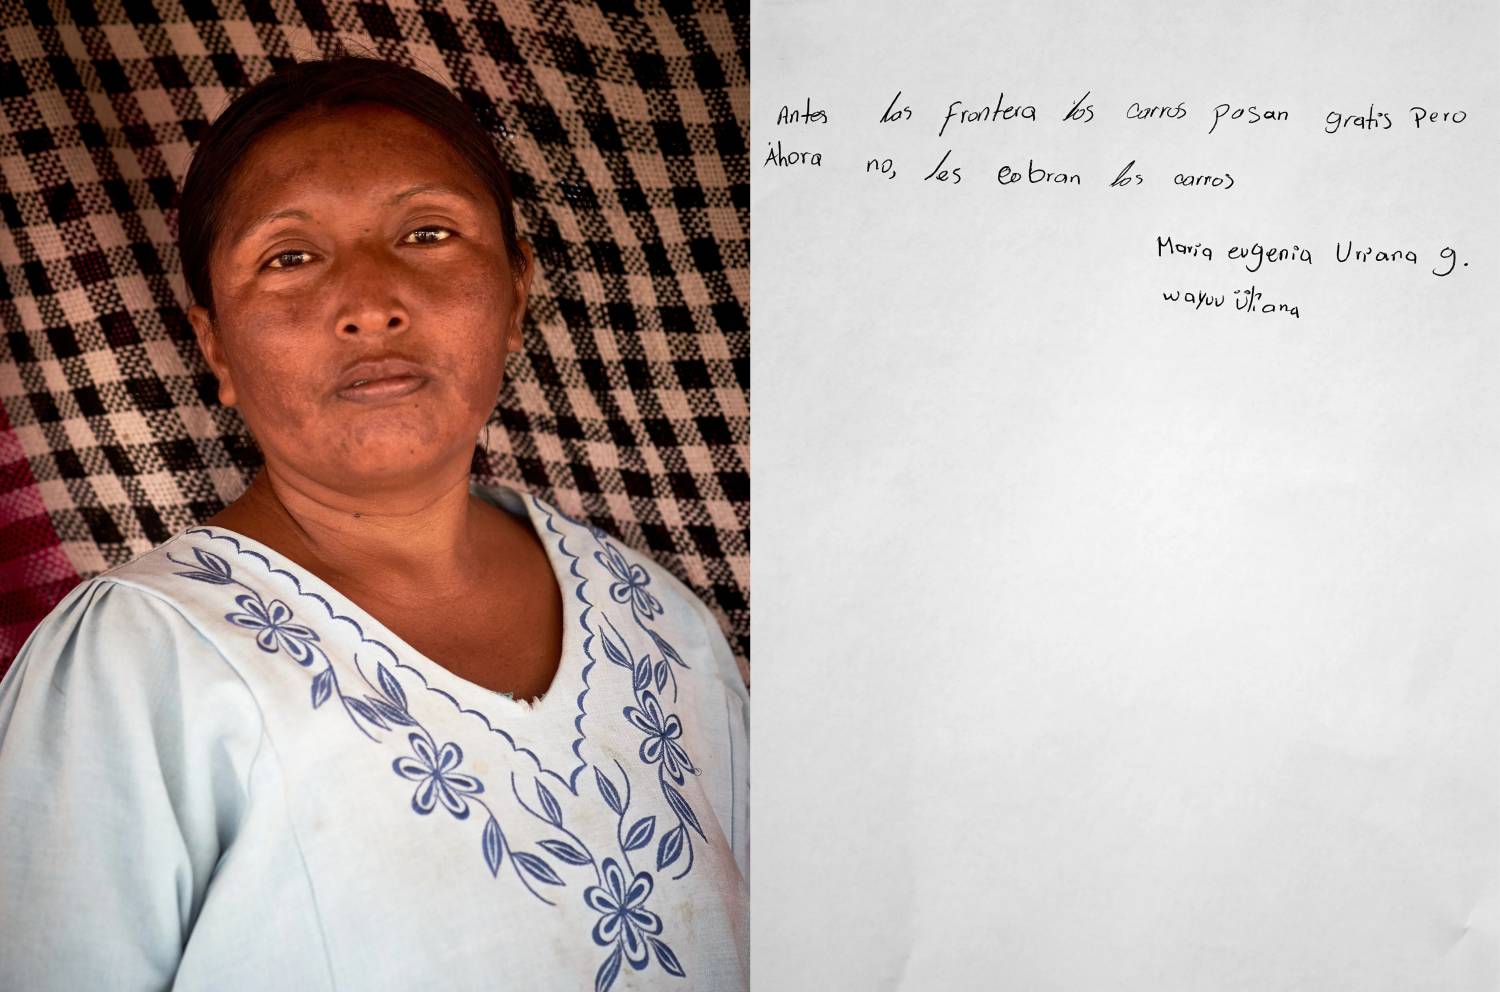 Antes las frontera los carros pasan gratis Pero
Ahora no, les cobran los carros
Maria eugenia Uriana g.
wayuu üliana